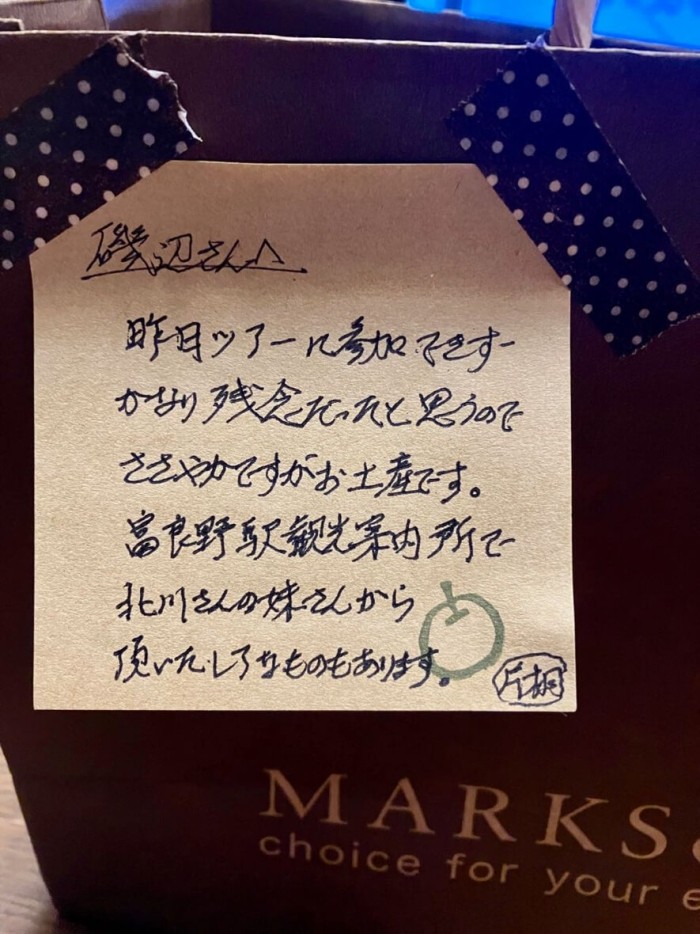 磯辺さん♪
昨日ツアーに参加できず
かなり残念だったと思うので
ささやかですがお土産です。
富良野駅観光案内所で
北川さんの妹さんから
頂いたレアなものもあります。
片桐
MARKS&
choice for your e